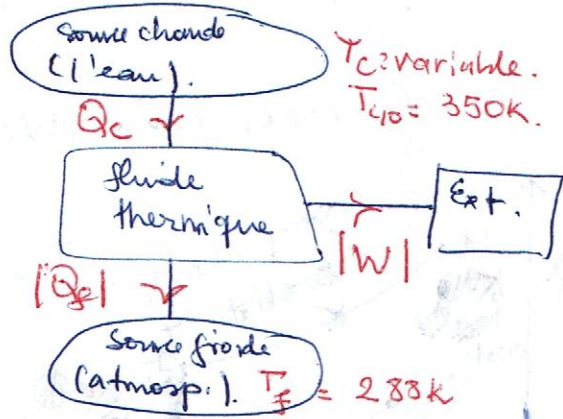 source chaude
(l'eau).
Tc = variable.
Tc,0 = 350K.
Qc
fluide
thermique
Ext.
|W|
|Qf|
source froide
(atmosp.).
Tf = 288K